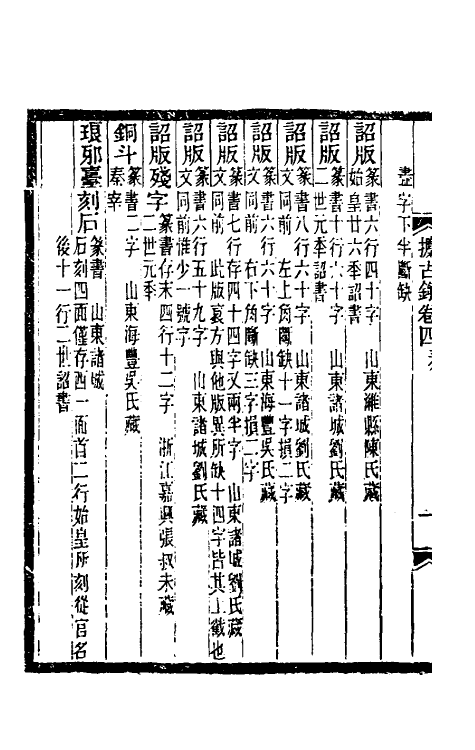 攈古錄卷四
一
壺字下半斷缺
詔版 篆書六行四十字　山東濰縣陳氏藏
始皇廿六秊詔書
詔版 篆書十行六十字　山東諸城劉氏藏
二世元秊詔書
詔版 篆書八行六十字　山東諸城劉氏藏
文同前　左上角闕缺十一字損二字
詔版 篆書六行六十字　山東海豐吳氏藏
文同前　右下角斷缺三字損二字
詔版 篆書七行存四十四字又兩半字　山東諸城劉氏藏
文同前　此版裦方與他版異所缺十四字皆其上截也
詔版 篆書六行五十九字　山東諸城劉氏藏
文同前惟少一號字
詔版殘字 篆書存末四行十二字　浙江嘉興張叔未藏
二世元秊
銅斗 篆書二字　山東海豐吳氏藏
秦宰
琅邪臺刻石 篆書　山東諸城
石刻四面僅存西一面首二行始皇所刻從官名
後十一行二世詔書